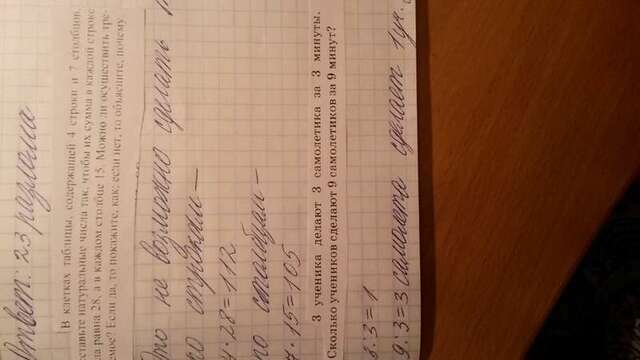 Ответ: 23 разлома
В клетках таблицы, содержащей 4 строки и 7 столбцов,
ставьте натуральные числа так, чтобы их сумма в каждой строке
ла равна 28, а в каждом столбце 15. Можно ли осуществить тре-
емое? Если да, то покажите, как; если нет, то объясните, почему
Это не возможно сделать
по строкам —
4·28=112
по столбцам —
7·15=105
3 ученика делают 3 самолетика за 3 минуты.
Сколько учеников сделают 9 самолетиков за 9 минут?
3:3=1
9:3=3 самолета сделает 1 уч.